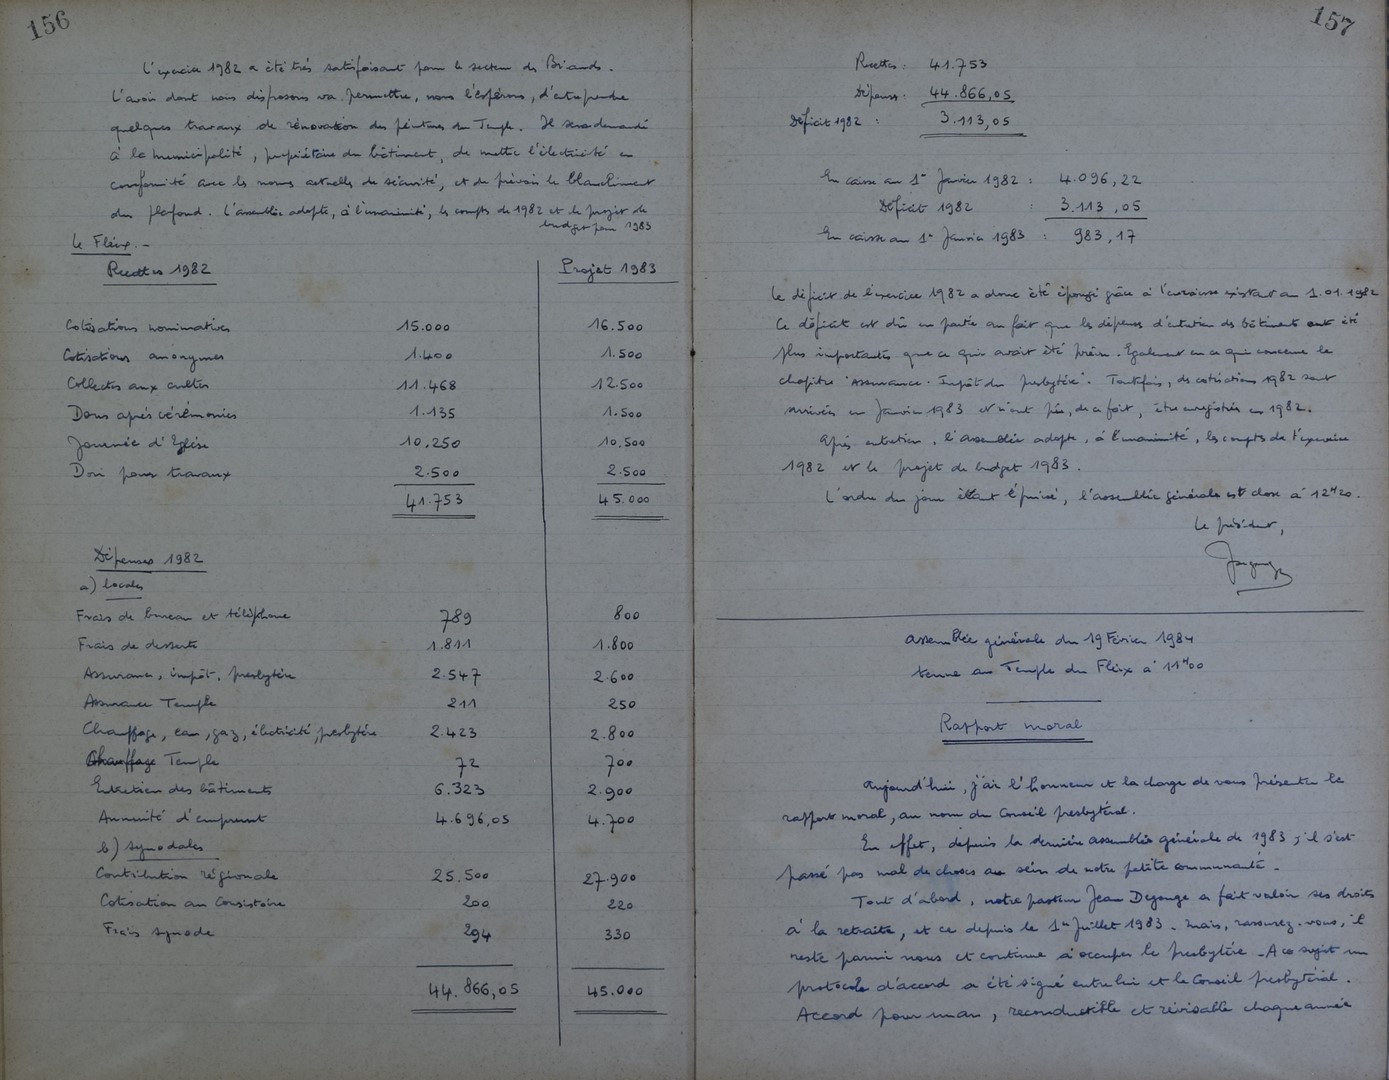 156
L'exercice 1982 a été très satisfaisant pour le secteur des Briands.
L'avoir dont nous disposons va permettre, nous l'espérons, d'entreprendre
quelques travaux de rénovation des peintures du Temple. Il sera demandé
à la municipalité, propriétaire du bâtiment, de mettre l'électricité en
conformité avec les normes actuelles de sécurité, et de prévoir le blanchiment
du plafond. L'assemblée adopte, à l'unanimité, les comptes de 1982 et le projet de
budget pour 1983
Le Fleix.-
Recettes 1982 Projet 1983
Cotisations nominatives 15.000 16.500
Cotisations anonymes 1.400 1.500
Collectes aux cultes 11.468 12.500
Dons après cérémonies 1.135 1.500
Journée d'Eglise 10.250 10.500
Don pour travaux 2.500 2.500
41.753 45.000
Dépenses 1982
a) locales
Frais de bureau et téléphone 789 800
Frais de desserte 1.811 1.800
Assurance, impôt, presbytère 2.547 2.600
Assurance Temple 211 250
Chauffage, eau, gaz, électricité, presbytère 2.423 2.800
Chauffage Temple 72 700
Entretien des bâtiments 6.323 2.900
Annuité d'emprunt 4.696,05 4.700
b) synodales
Contribution régionale 25.500 27.900
Cotisation au Consistoire 200 220
Frais synode 294 330
44.866,05 45.000
157
Recettes : 41.753
Dépenses : 44.866,05
Déficit 1982 : 3.113,05
En caisse au 1er Janvier 1982 : 4.096,22
Déficit 1982 : 3.113,05
En caisse au 1er Janvier 1983 : 983,17
Le déficit de l'exercice 1982 a donc été épongé grâce à l'encaisse existant au 1.01.1982
Ce déficit est dû en partie au fait que les dépenses d'entretien des bâtiments ont été
plus importantes que ce qui avait été prévu. Egalement en ce qui concerne le
chapitre "Assurance - Impôt du presbytère". Toutefois, des cotisations 1982 sont
arrivées en Janvier 1983 et n'ont pu, de ce fait, être enregistrées en 1982.
Après entretien, l'assemblée adopte, à l'unanimité, les comptes de l'exercice
1982 et le projet de budget 1983.
L'ordre du jour étant épuisé, l'assemblée générale est close à 12H20.
Le président,
Assemblée générale du 19 Février 1984
tenue au Temple du Fleix à 11H00
Rapport moral
Aujourd'hui, j'ai l'honneur et la charge de vous présenter le
rapport moral, au nom du Conseil presbytéral.
En effet, depuis la dernière assemblée générale de 1983, il s'est
passé pas mal de choses au sein de notre petite communauté.
Tout d'abord, notre pasteur Jean Degouge a fait valoir ses droits
à la retraite, et ce depuis le 1er Juillet 1983. Mais, rassurez-vous, il
reste parmi nous et continue à occuper le presbytère - A ce sujet un
protocole d'accord a été signé entre lui et le Conseil presbytéral.
Accord pour un an, reconductible et révisable chaque année